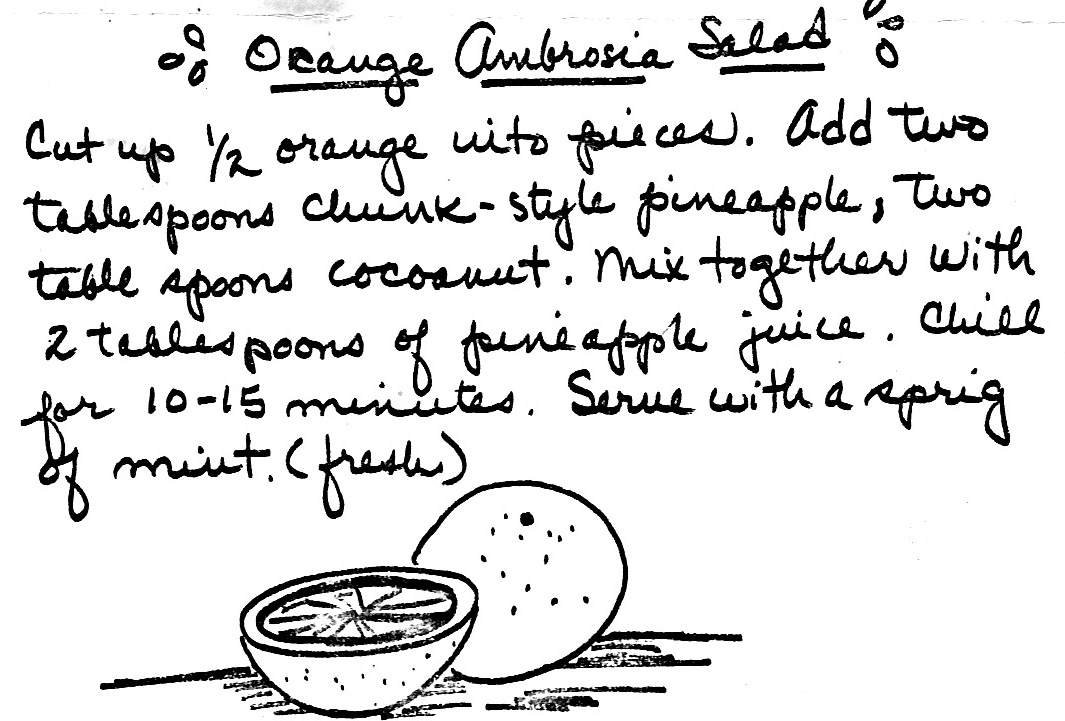 Orange Ambrosia Salad
Cut up 1/2 orange into pieces. Add two
tablespoons chunk-style pineapple, two
table spoons cocoanut. Mix together with
2 tablespoons of pineapple juice. Chill
for 10-15 minutes. Serve with a sprig
of mint. (fresh)